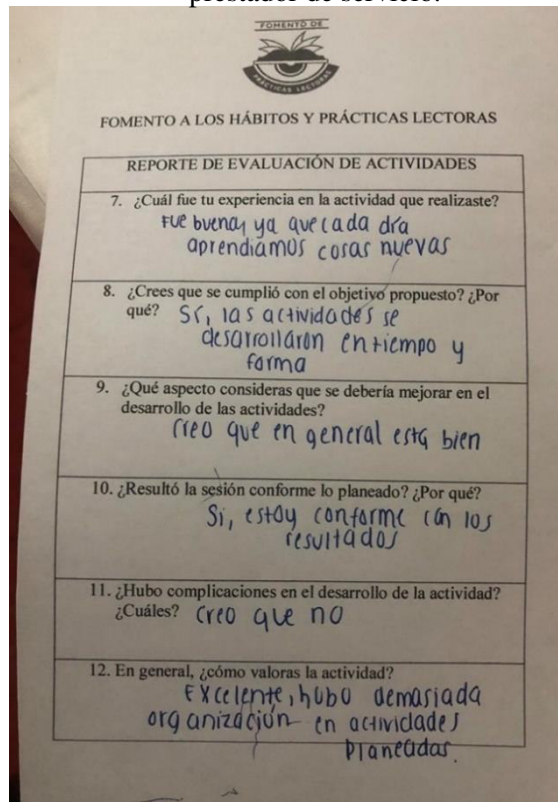 prestador de servicio.
FOMENTO DE
PRÁCTICAS LECTORAS
FOMENTO A LOS HÁBITOS Y PRÁCTICAS LECTORAS
REPORTE DE EVALUACIÓN DE ACTIVIDADES
7. ¿Cuál fue tu experiencia en la actividad que realizaste?
Fue buena, ya que cada día
aprendiamos cosas nuevas
8. ¿Crees que se cumplió con el objetivo propuesto? ¿Por
qué? Sí, las actividades se
desarrollaron en tiempo y
forma
9. ¿Qué aspecto consideras que se debería mejorar en el
desarrollo de las actividades?
Creo que en general esta bien
10. ¿Resultó la sesión conforme lo planeado? ¿Por qué?
Si, estoy conforme con los
resultados
11. ¿Hubo complicaciones en el desarrollo de la actividad?
¿Cuáles? Creo que no
12. En general, ¿cómo valoras la actividad?
Excelente, hubo demasiada
organización en actividades
planeadas.